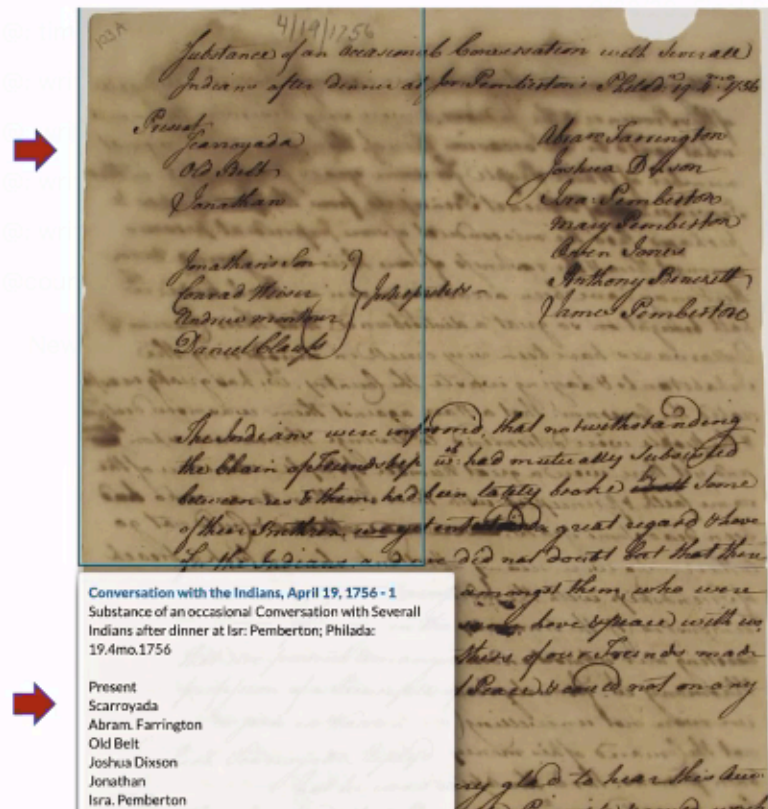 123A
4/19/1756
Substance of an occasional Conversation with Severall
Indians after dinner at Isr Pemberton's Philada 19 4mo 1756
Present
Scarroyada
Old Belt
Jonathan
Jonathan's Son
Conrad Weiser
Andrew Montour
Daniel Claus
Interpreters
Abram Farrington
Joshua Dixson
Isra: Pemberton
Mary Pemberton
Owen Jones
Anthony Benezett
James Pemberton
The Indians were informed, that notwithstanding
the Chain of Friendship wch had mutually Subsisted
between us & them had been lately broke some
of their Brethren, we yet a great regard & love
for the Indians, and we did not doubt but that there
amongst them, who were
love & peace with us
of our Friends made
of Peace & could not on any
glad to hear this
Conversation with the Indians, April 19, 1756 - 1
Substance of an occasional Conversation with Severall
Indians after dinner at Isr: Pemberton; Philada:
19.4mo.1756
Present
Scarroyada
Abram. Farrington
Old Belt
Joshua Dixson
Jonathan
Isra. Pemberton